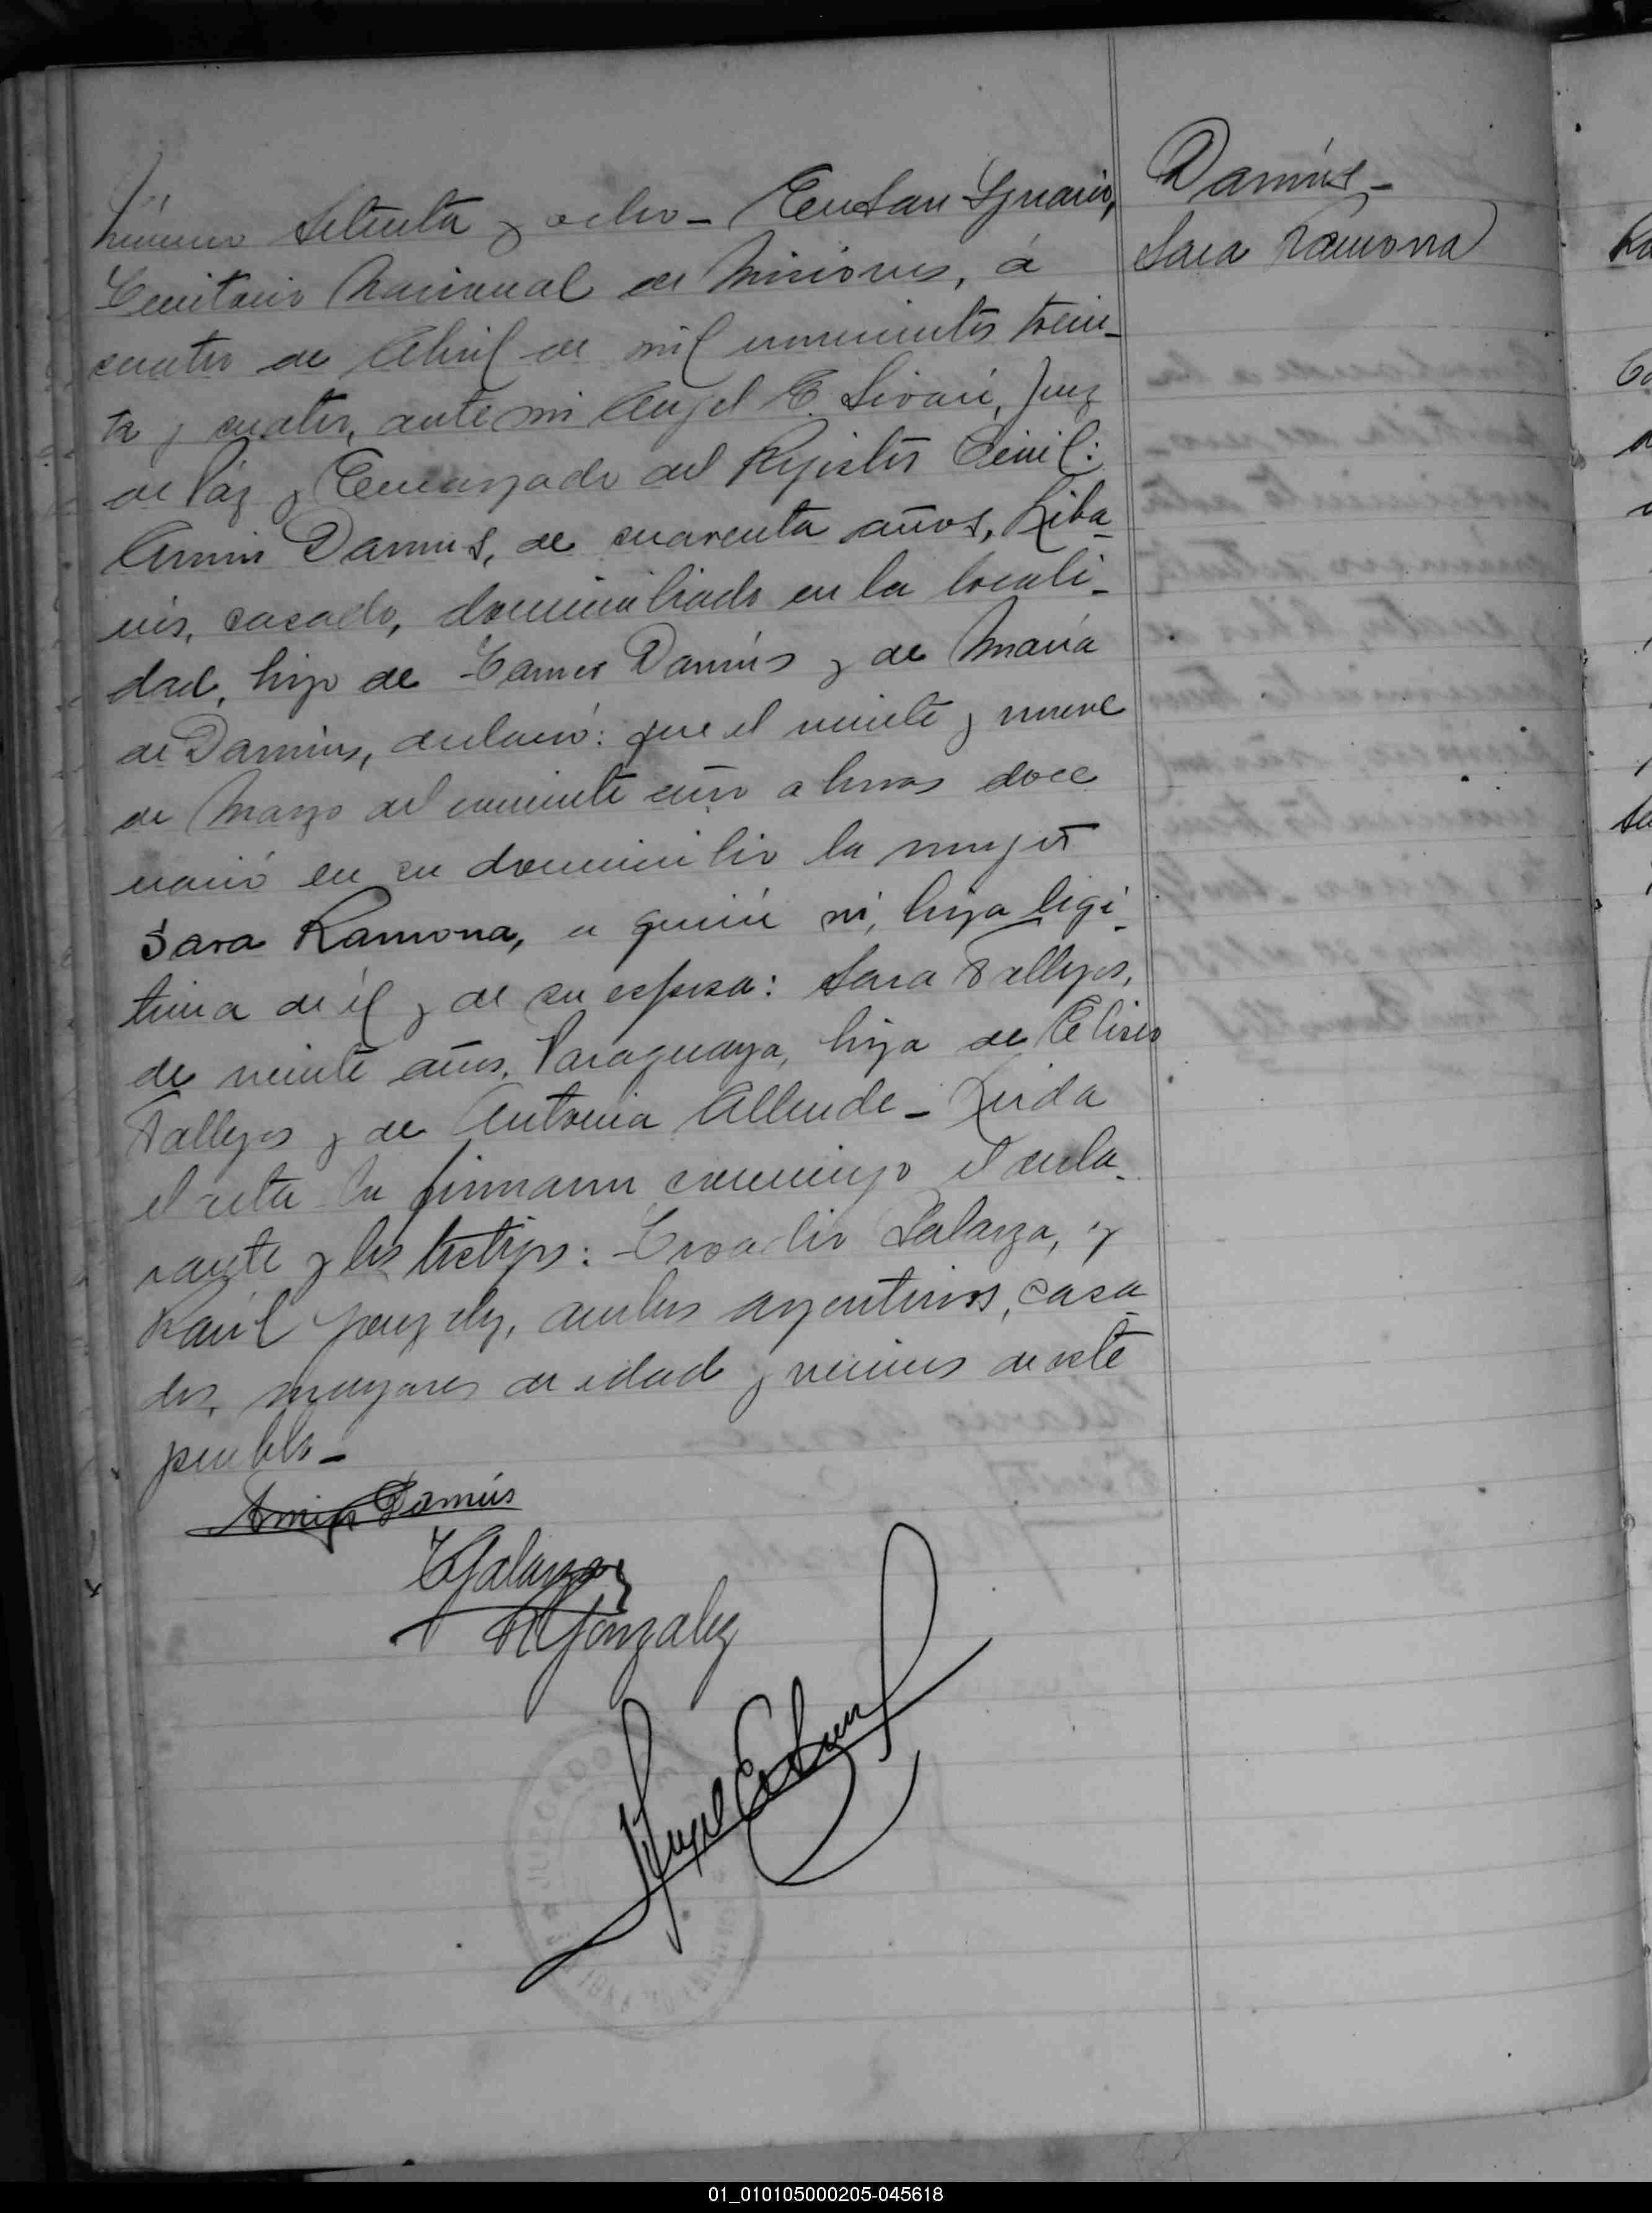 Número Setenta y ocho - En San Ygnacio,
Territorio Nacional de Misiones, á
cuatro de Abril de mil novecientos trein-
ta y cuatro, ante mi Angel E. Sivori, Juez
de Páz y Encargado del Registro Civil:
Amin Damus, de cuarenta años, Liba-
nés, casado, domiciliado en la locali-
dad, hijo de Damús y de María
de Damús, declaró: que el veinte y nueve
de Marzo del corriente año a horas doce
nació en su domicilio la mujer
Sara Ramona, a quien ví, hija legi-
tima de él y de su esposa: Sara Vallejos,
de veinte años, Paraguaya, hija de Eliseo
Vallejos y de Antonia Allende - Leida
el acta la firmaron conmigo el decla-
rante y los testigos: Galarza, y
Raúl González, ambos argentinos, casa-
dos, mayores de edad y vecinos de este
pueblo -
Damús -
Sara Ramona
Amin Damús
Galarza
R Gonzalez
Angel E Sivori
JUZGADO
01_010105000205-045618